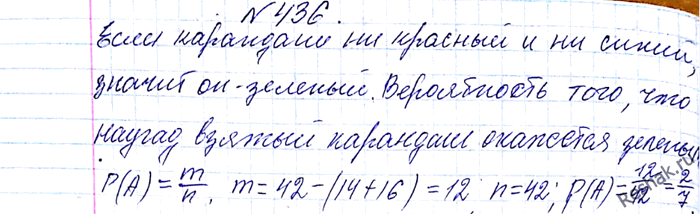 №436.
Если карандаш ни красный и ни синий,
значит он-зеленый. Вероятность того, что
наугад взятый карандаш окажется зелены
P(A)=m/n. m=42-(14+16)=12 n=42; P(A)=12/42=2/7
Reshak.ru